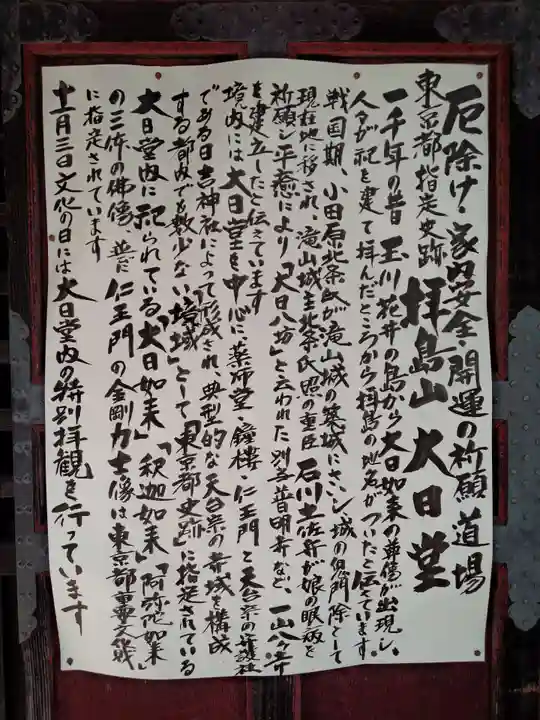 厄除け・家内安全・開運の祈願道場
東京都指定史跡 拝島山 大日堂
一千年の昔 玉川花井の島から大日如来の尊像が出現し、
人々が祀を建て拝んだところから拝島の地名がついたと伝えています。
戦国期、小田原北条氏が滝山城の築城にさいし城の鬼門除として
現在地に移され、滝山城主北条氏照の重臣 石川土佐守が娘の眼病を
祈願し平癒により「大日八坊」と云われた別当普明寺など、一山八ヶ寺
を建立したと伝えています
境内には大日堂を中心に薬師堂・鐘楼・仁王門と天台宗の守護社
である日吉神社によって形成され、典型的な天台宗の寺域を構成
する都内でも数少ない境域として「東京都史跡」に指定されている
大日堂内に祀られている「大日如来」「釈迦如来」「阿弥陀如来」
の三体の佛像 並に 仁王門の金剛力士像は東京都重要文化財
に指定されています
十一月三日文化の日には大日堂内の特別拝観を行っています